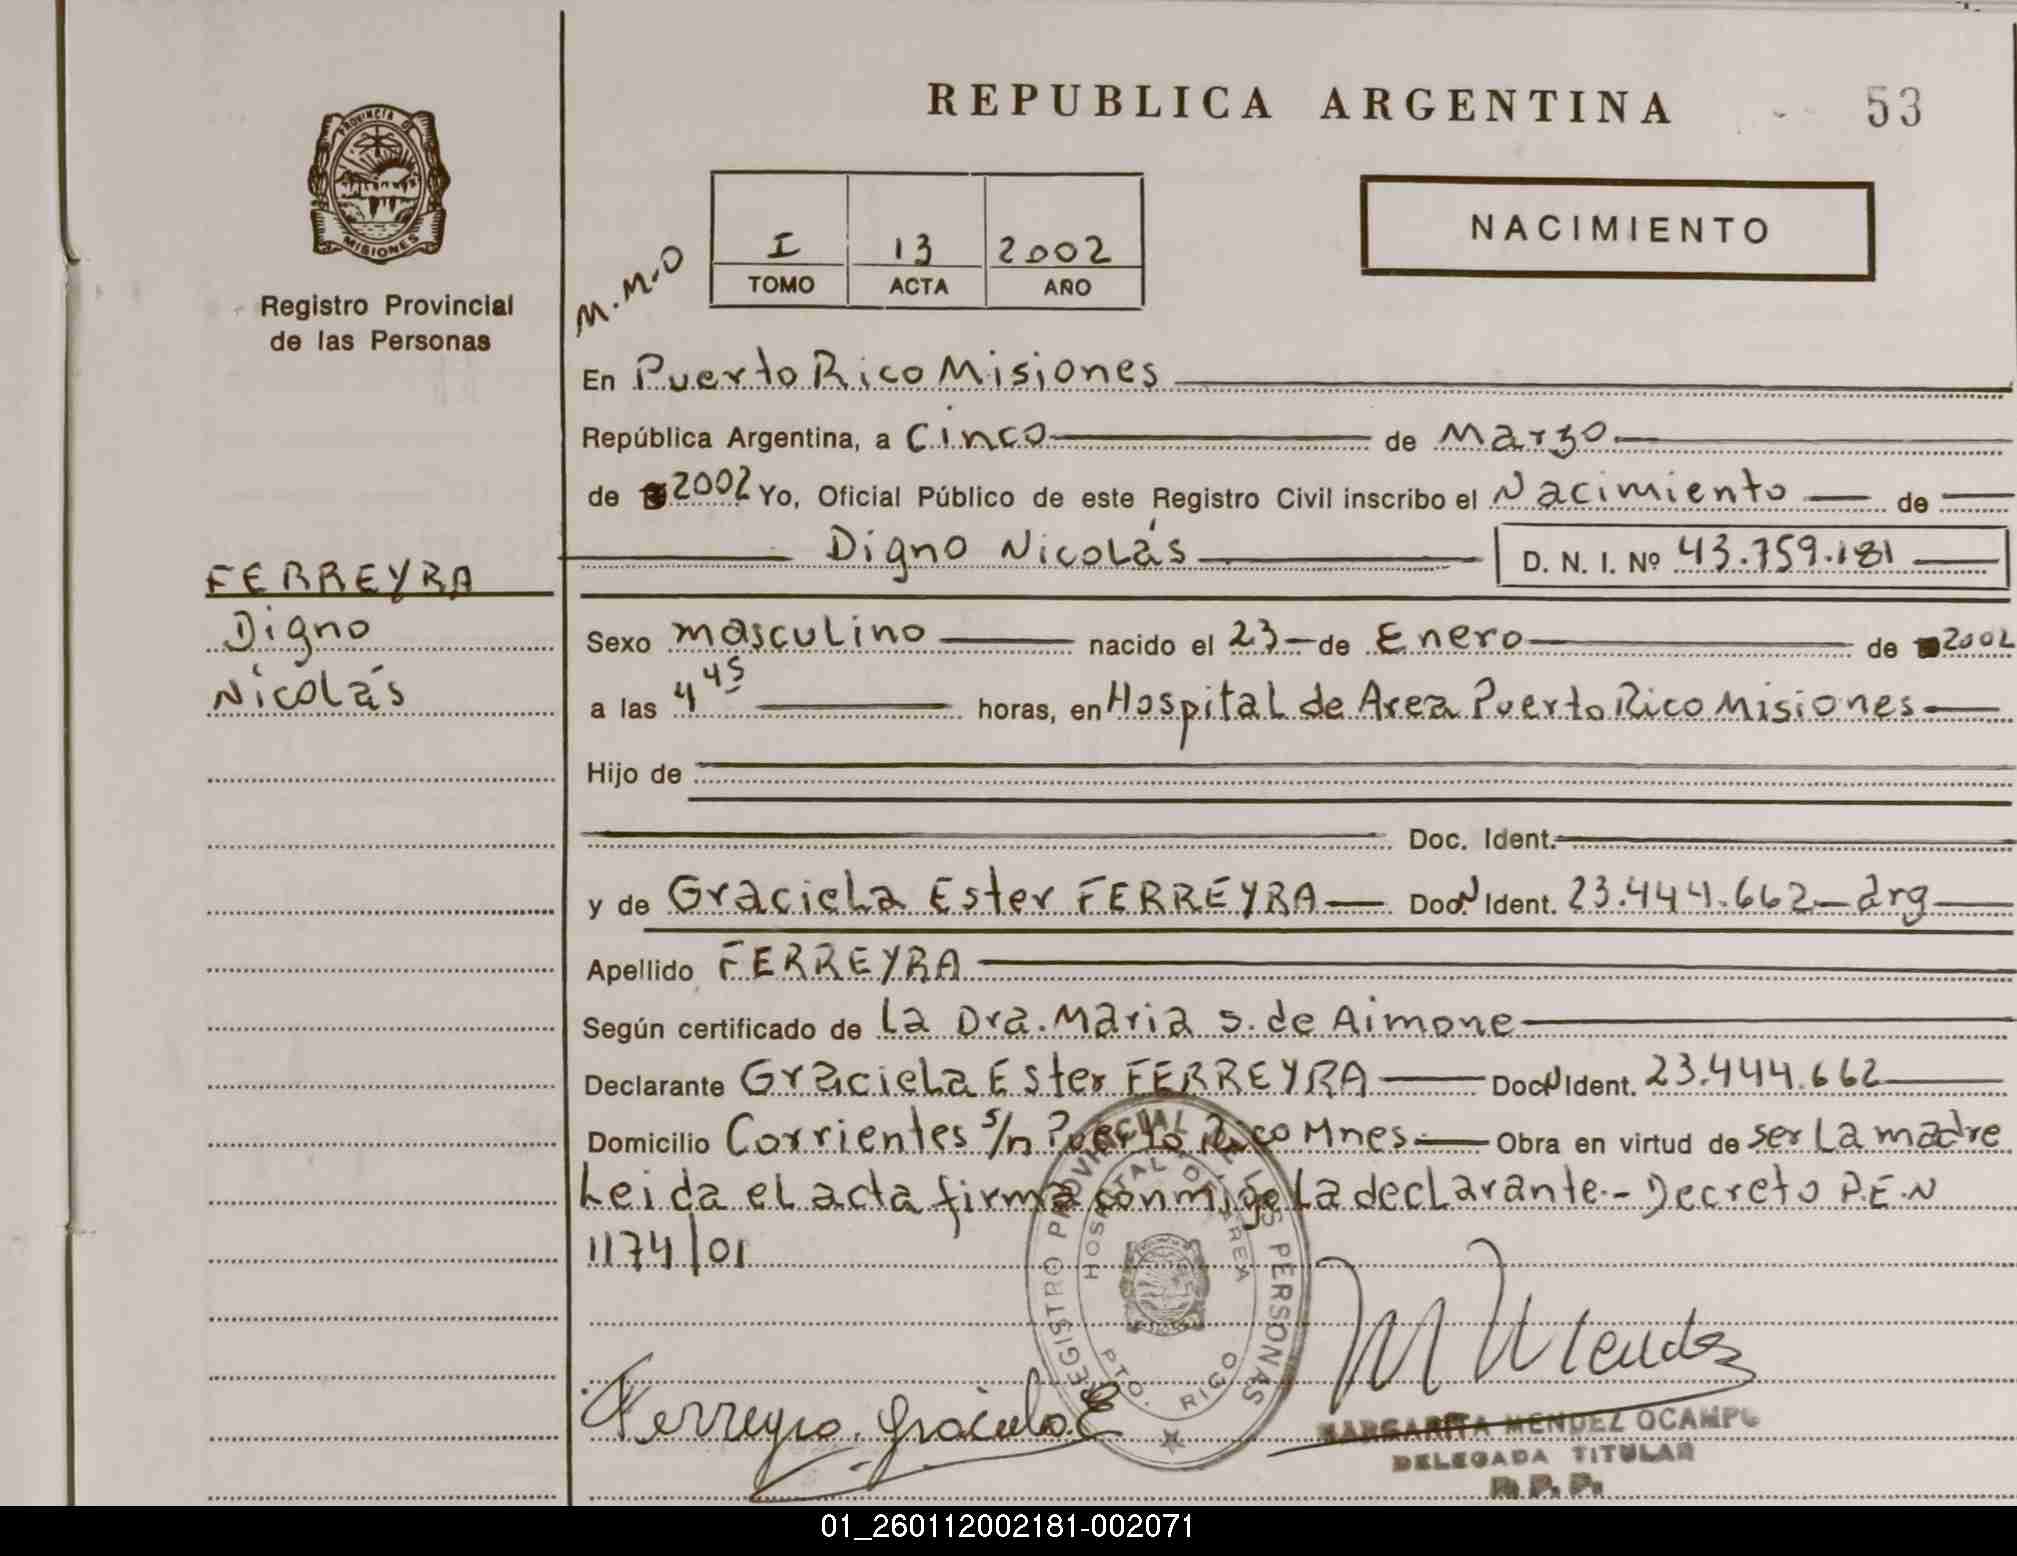 REPUBLICA ARGENTINA
53
PROVINCIA DE
MISIONES
Registro Provincial
de las Personas
M.M.O
I 13 2002
TOMO ACTA AÑO
NACIMIENTO
En Puerto Rico Misiones
República Argentina, a Cinco de Marzo
de 2002 Yo, Oficial Público de este Registro Civil inscribo el Nacimiento de
Digno Nicolás D. N. I. Nº 43.759.181
FERREYRA
Digno
Nicolás
Sexo masculino nacido el 23 de Enero de 2002
a las 4 45 horas, en Hospital de Area Puerto Rico Misiones
Hijo de
Doc. Ident.
y de Graciela Ester FERREYRA Doc. N Ident. 23.444.662 arg
Apellido FERREYRA
Según certificado de La Dra. Maria S. de Aimone
Declarante Graciela Ester FERREYRA Doc N Ident. 23.444.662
Domicilio Corrientes s/n Puerto Rico Mnes. Obra en virtud de ser La madre
Leida el acta firma conmigo La declarante.- Decreto P.E.N
1174/01
REGISTRO PROVINCIAL DE LAS PERSONAS
HOSPITAL DE AREA
PTO. RICO
Ferreyra Graciela E
M Mendez
MARGARITA MENDEZ OCAMPO
DELEGADA TITULAR
R. P. P.
01_260112002181-002071